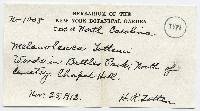 HERBARIUM OF THE
NEW YORK BOTANICAL GARDEN
No 1048 North Carolina.
TYPE
Melanoleuca Totteni
Woods in Battles Park, North of
Cemetery Chapel Hill.
Nov. 23, 1912. H. R. Totten